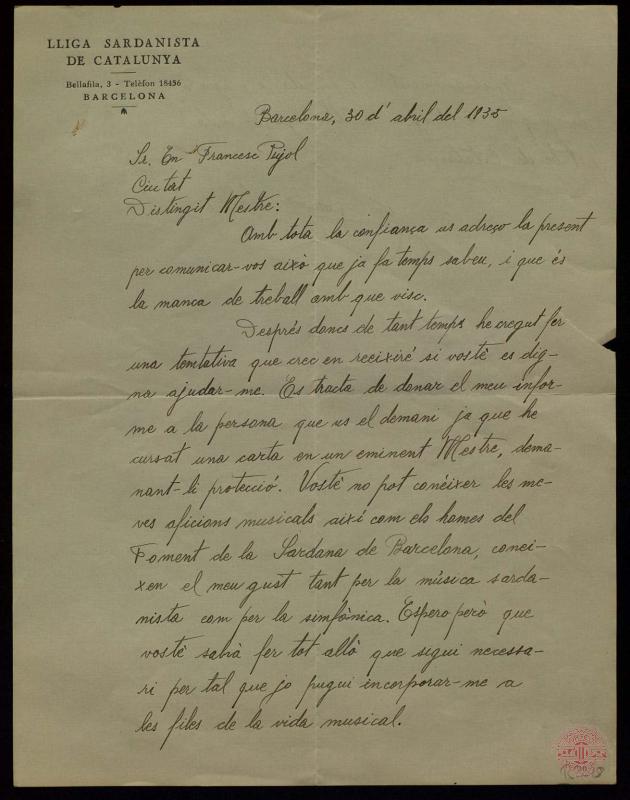 LLIGA SARDANISTA
DE CATALUNYA
Bellafila, 3 - Telèfon 18456
BARCELONA
Barcelona, 30 d' abril del 1935
Sr. En Francesc Pujol
Ciutat
Distingit Mestre:
Amb tota la confiança us adreço la present
per comunicar-vos això que ja fa temps sabeu, i que és
la manca de treball amb que visc.
Després doncs de tant temps he cregut fer
una temtativa que crec en reeixiré si vostè es dig-
na ajudar-me. Es tracta de donar el meu infor-
me a la persona que us el demani ja que he
cursat una carta en un eminent Mestre, dema-
nant-li protecció. Vostè no pot conèixer les me-
ves aficions musicals aixi com els homes del
Foment de la Sardana de Barcelona, conei-
xen el meu gust tant per la música sarda-
nista com per la simfònica. Espero però que
vostè sabà fer tot allò que sigui necessa-
ri per tal que jo pugui incorporar-me a
les files de la vida musical.